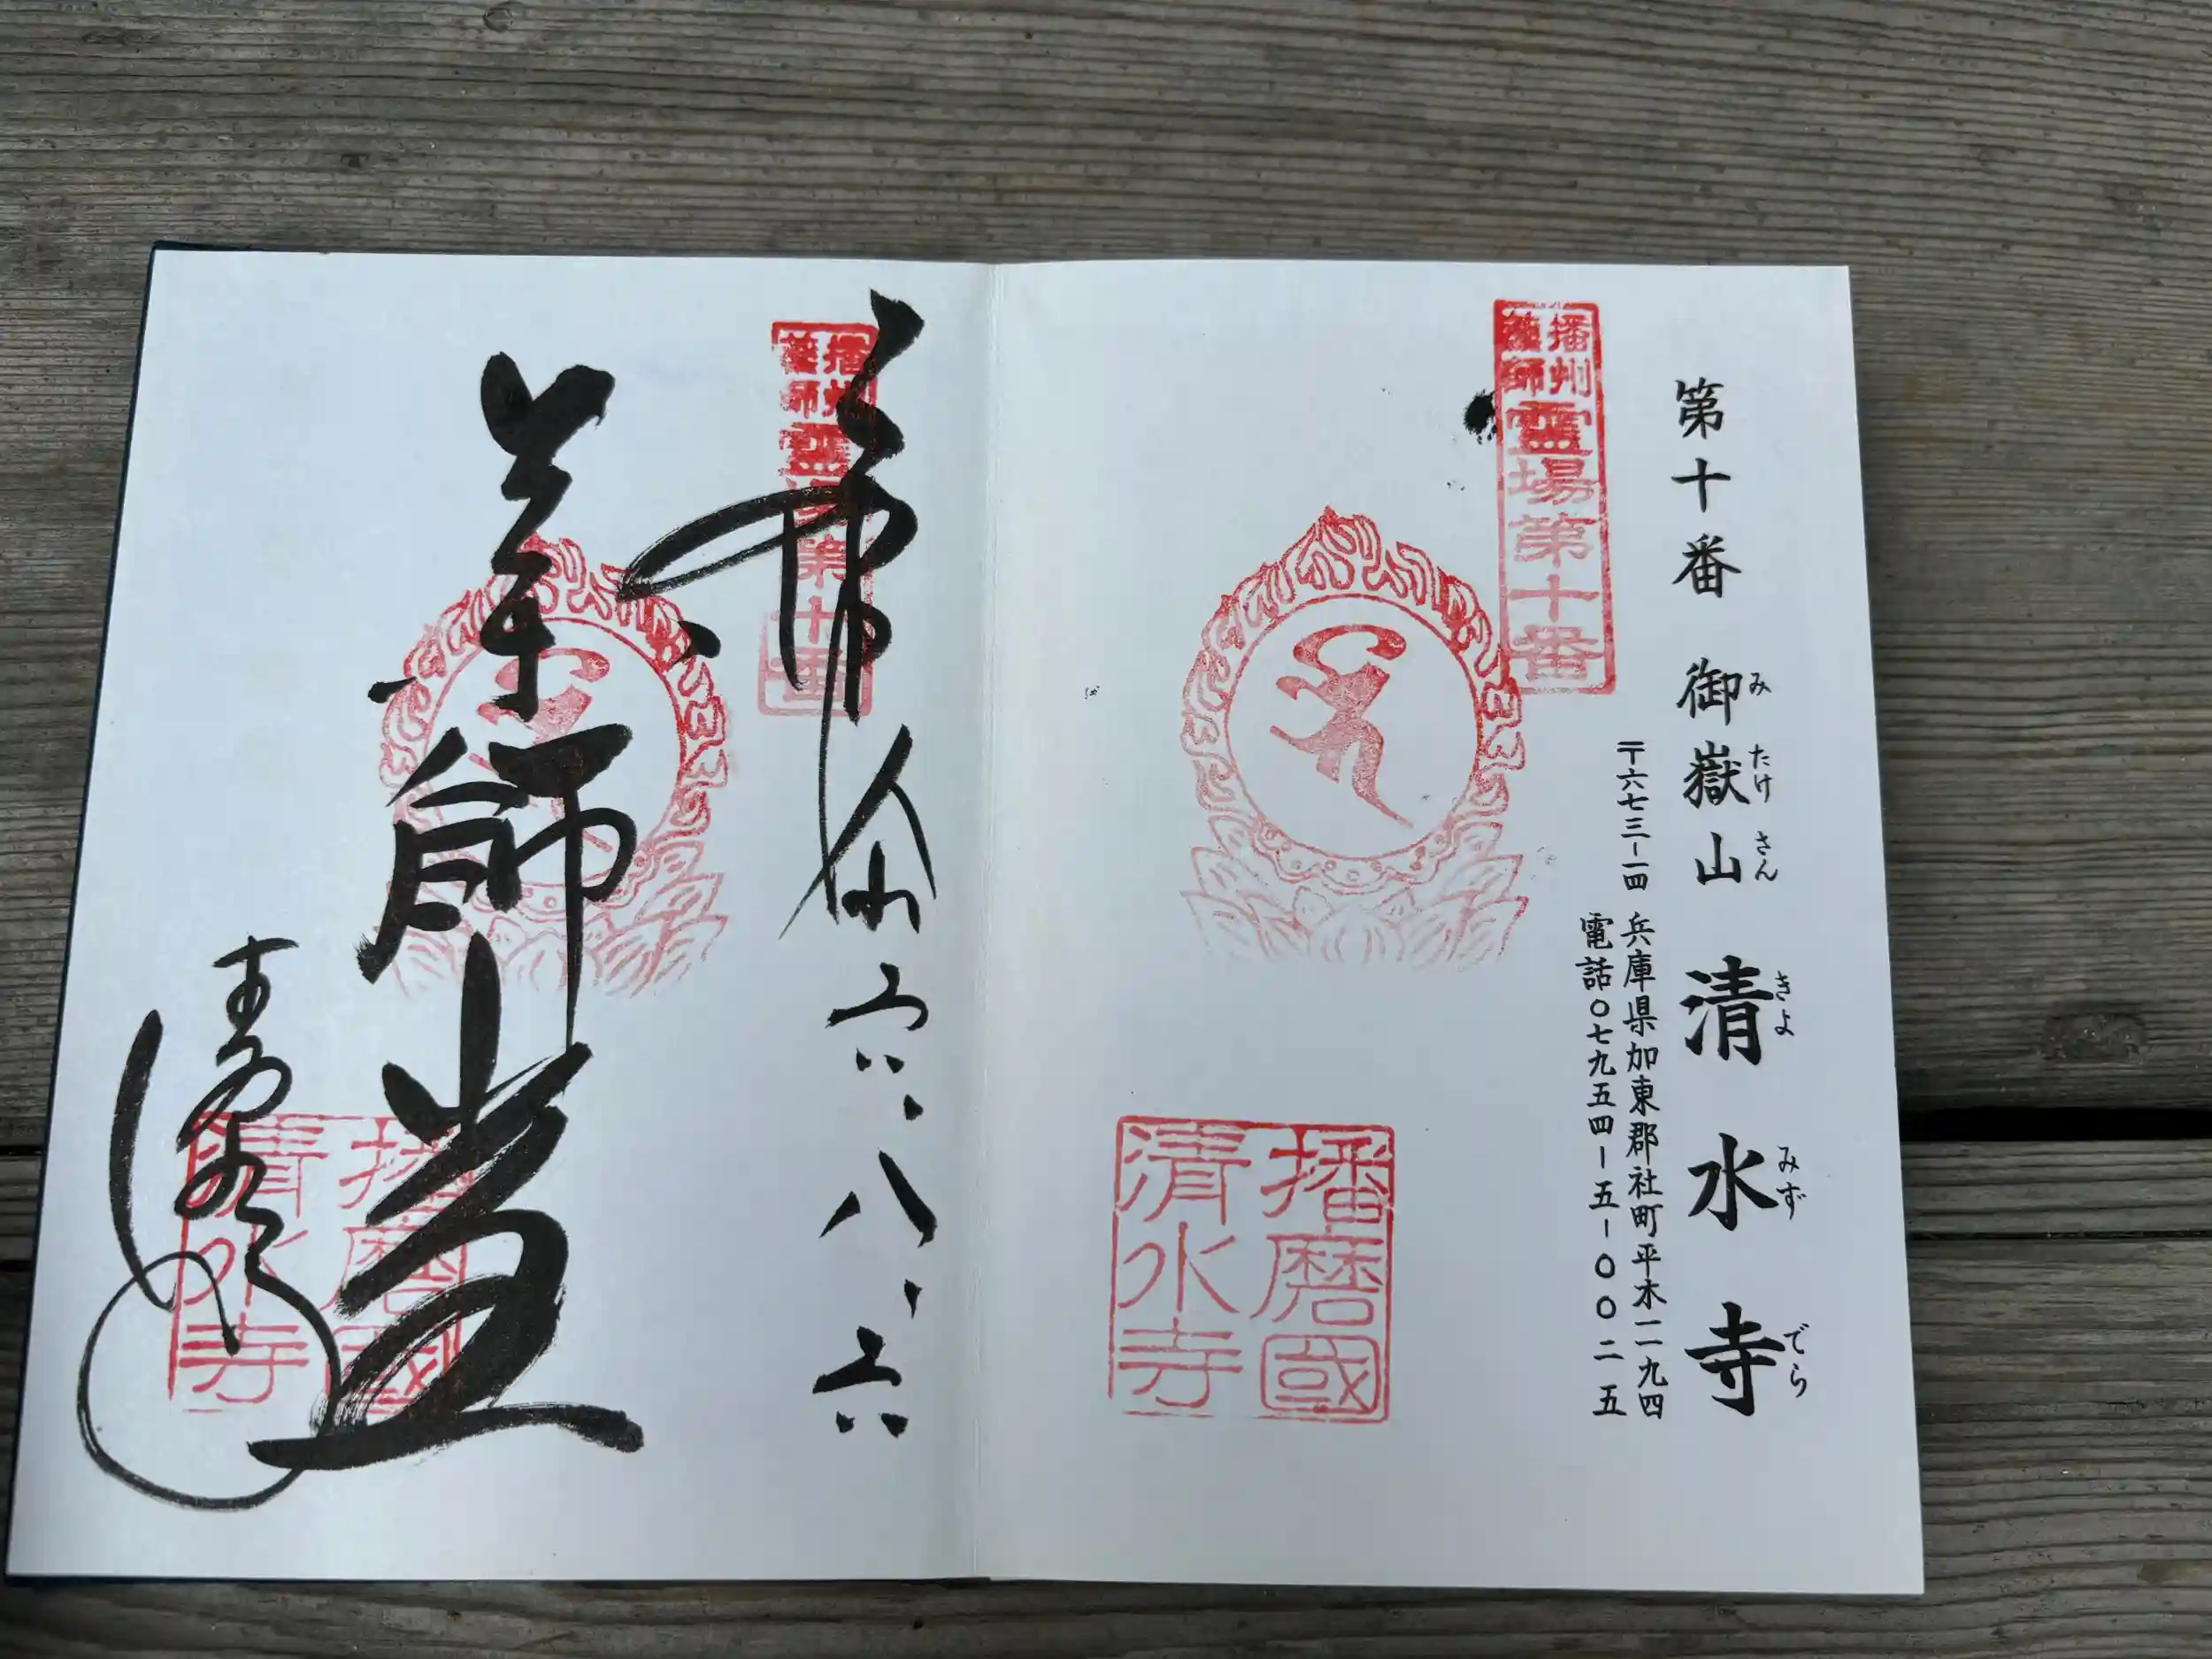 第十番 御嶽山 清水寺
み たけ さん きよ みず でら
〒六七三-一四 兵庫県加東郡社町平木一一九四
電話〇七九五四-五-〇〇二五
播州薬師霊場第十番
播磨國
清水寺
奉拝 六・八・六
播州薬師霊場第十番
薬師堂
播磨國
清水寺
清水寺